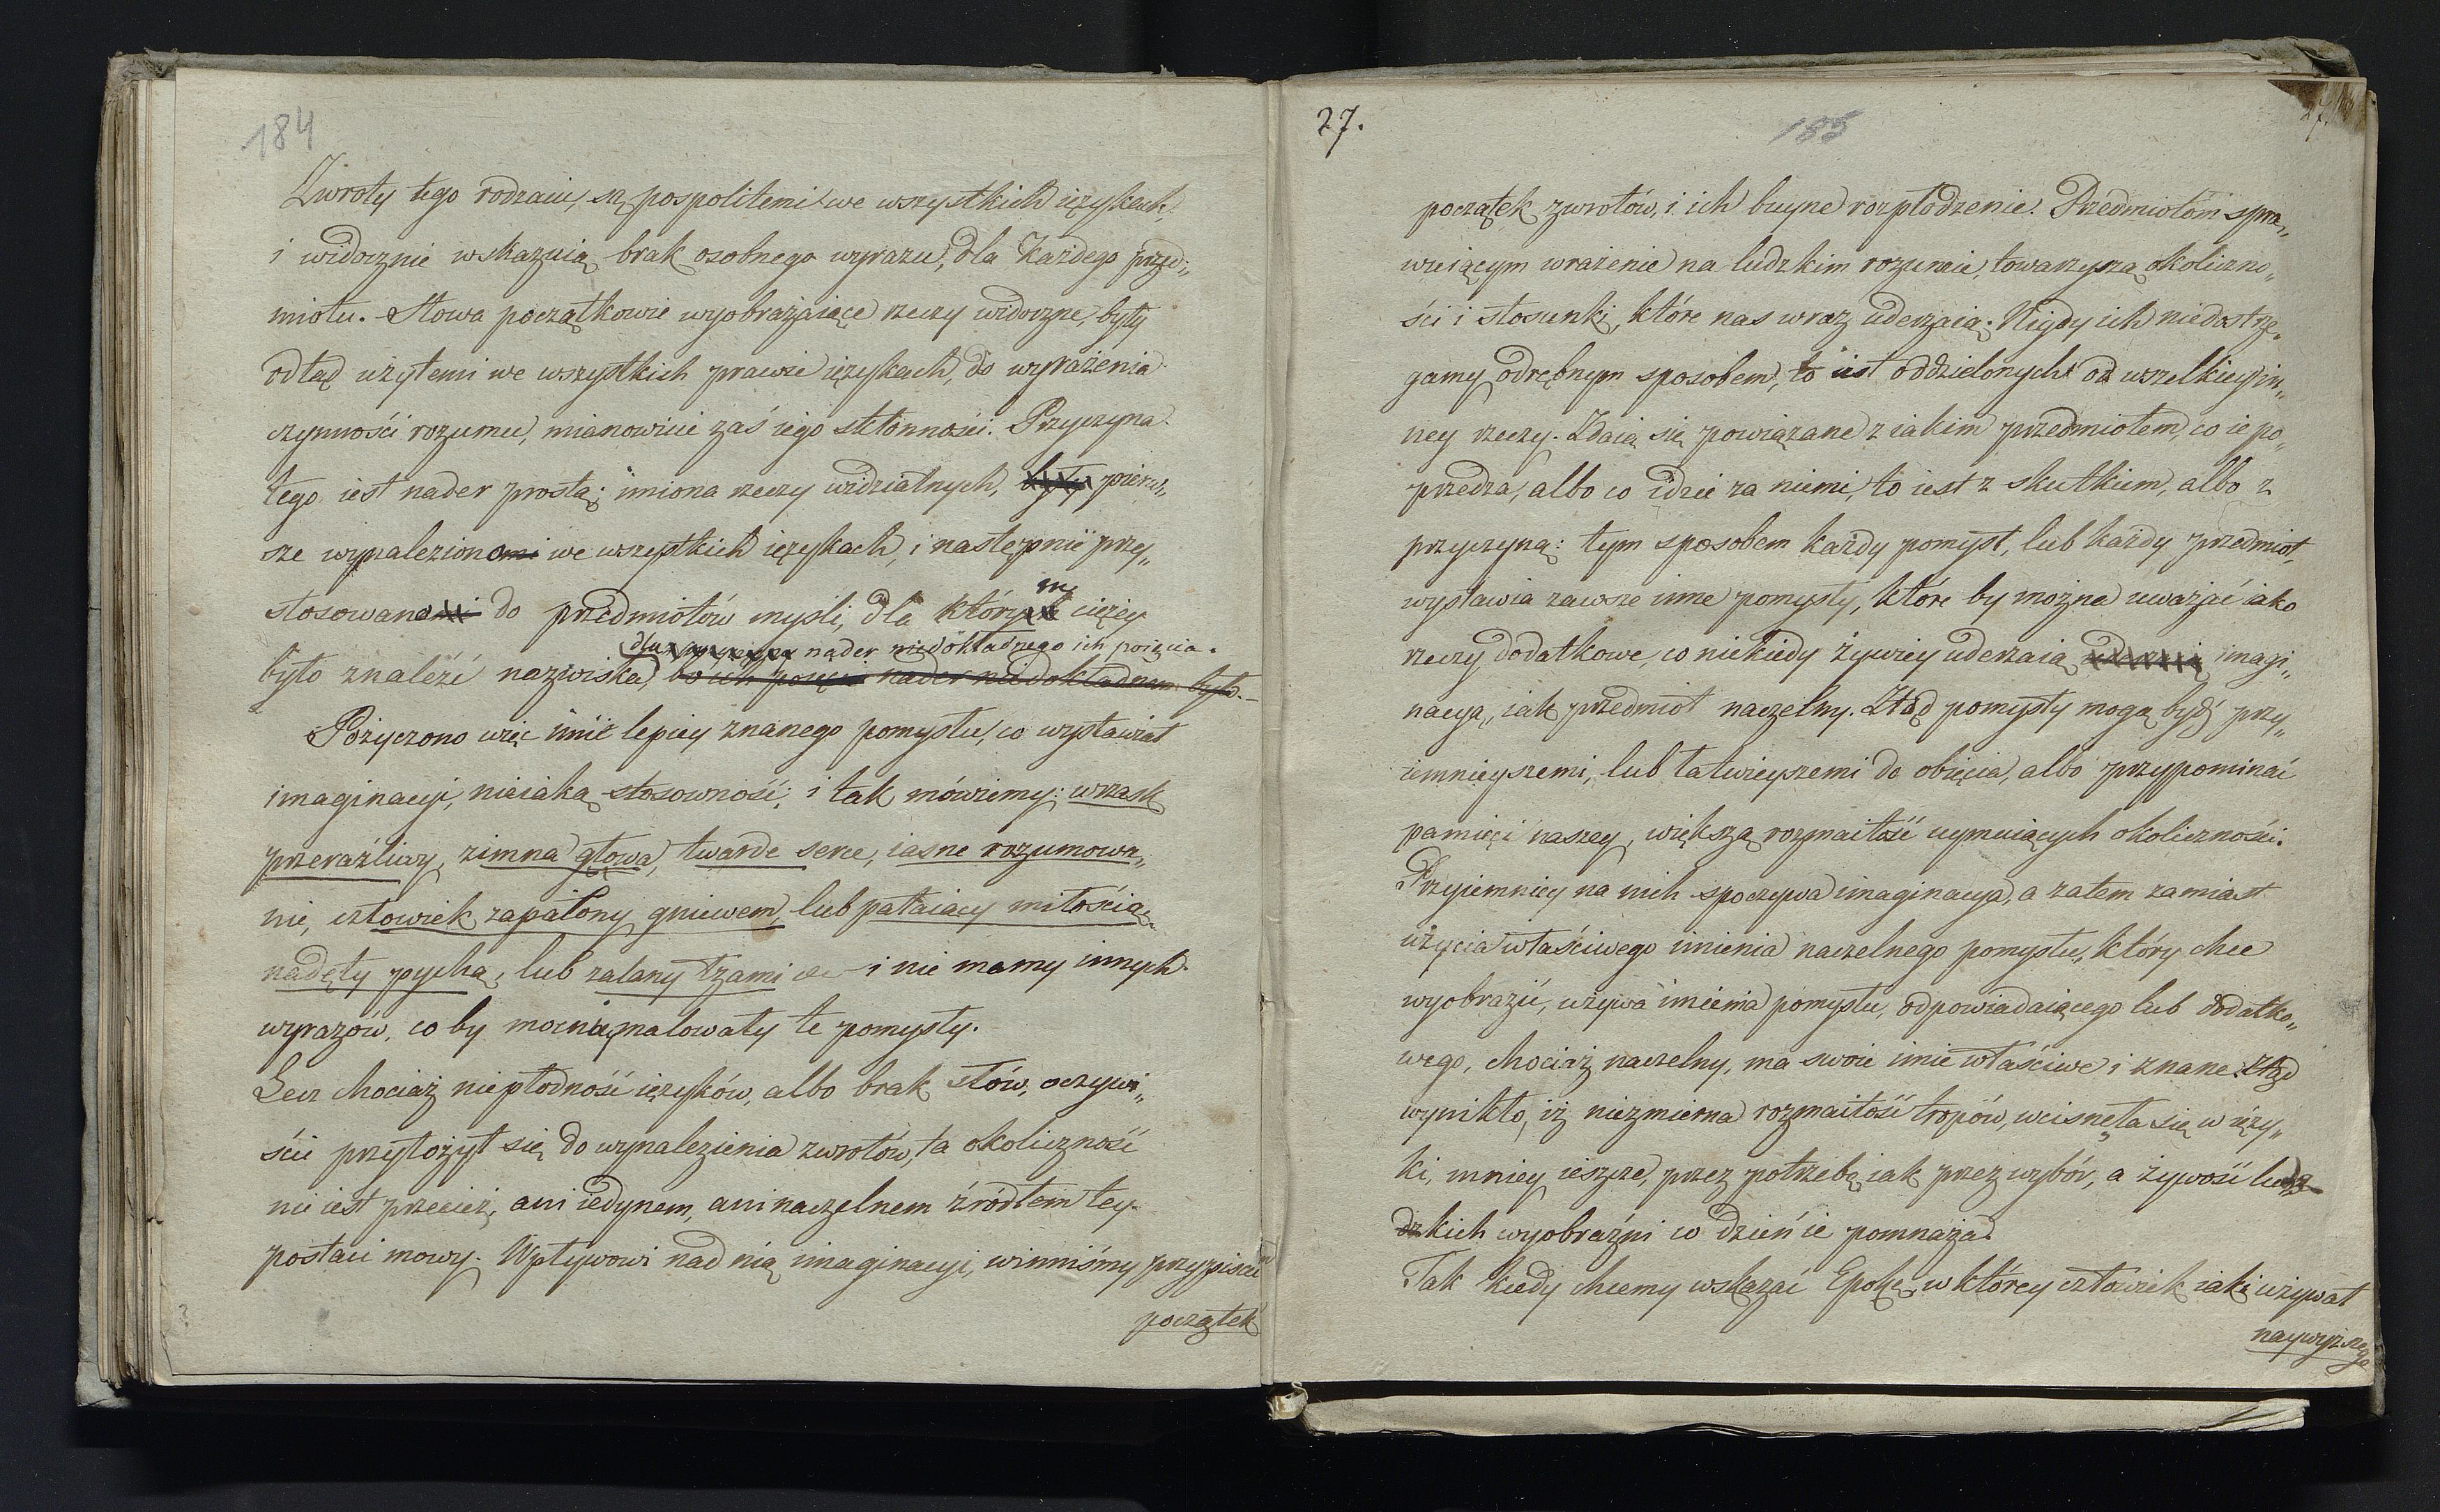 184
Zwroty tego rodzaiu, są pospolitemi we wszystkich ięzykach
i widocznie wskazuią brak osobnego wyrazu, dla każdego przed„
miotu. Słowa początkowie wyobrażaiące rzeczy widoczne, były
odtąd użytemi we wszystkich prawie ięzykach, do wyrażenia
czynności rozumu, mianowicie zaś iego skłonności. Przyczyna
tego iest nader prosta; imiona rzeczy widzialnych, były pierw„
sze wynalezionemi we wszystkich ięzykach, i następnie przy„
stosowanemi do przedmiotów myśli, dla którym cięźey
nader niedokładnego ich poięcia.
było znaleźć nazwiska, bo ich poięcie nader niedokładnem było.–
Pożyczono więc imie lepiey znanego pomysłu, co wystawiał
imaginacyi, nieiaką stosowność; i tak mówiemy: wrzask
przeraźliwy, zimna głowa, twarde serce, iasne rozumowa„
nie, człowiek zapalony gniewem, lub pałaiący miłością,
nadęty pychą, lub zalany łzami &c – i nie mamy innych
wyrazów, co by mocnięy malowały te pomysły.
Lecz chociaż niepłodność ięzyków, albo brak słów, oczywi„
ście przyłożył się do wynalezienia zwrotów, ta okoliczność
nie iest przecież, ani iedynem, ani naczelnem źródłem tey
postaci mowy. Wpływowi nad nią imaginacyi, winniśmy przypisać
początek
27.
185
początek zwrotów, i ich buyne rozpłodzenie. Przedmiotom spra„
wuiącym wrażenie na ludzkim rozumie, towarzyszą okoliczno„
ści i stosunki, które nas wraz uderzaią. Nigdy ich niedostrze„
gamy odrębnym sposobem, to iest oddzielonych od wszelkiey in„
ney rzeczy. Zdaią się powiązane z iakim przedmiotem, co ie po„
przedza, albo co idzie za niemi, to iest z skutkiem, albo z
przyczyną: tym sposobem każdy pomysł, lub każdy przedmiot,
wystawia zawsze inne pomysły, które by można uważać iako
rzeczy dodatkowe, co niekiedy żywiey uderzaią uderzaią imagi„
nacyą, iak przedmiot naczelny. Ztąd pomysły mogą bydź przy„
iemnieyszemi, lub łatwieyszemi do obięcia, albo przypominać
pamięci naszey, większą rozmaitość uymuiących okoliczności.
Przyiemniey na nich spoczywa imaginacya, a zatem zamiast
użycia właściwego imienia naczelnego pomysłu, który chce
wyobrazić, używa imienia pomysłu, odpowiadaiącego lub dodatko„
wego, chociaż naczelny, ma swoie imie właściwe i znane. Ztąd
wynikło, iż niezmierna rozmaitość tropów, wcisnęła się w ięzy„
ki, mniey ieszcze, przez potrzebę iak przez wybór, a żywość ludz
dzkich wyobraźni co dzień ie pomnaża.
Tak kiedy chcemy wskazać Epokę, w którey człowiek iaki używał
naywyższego